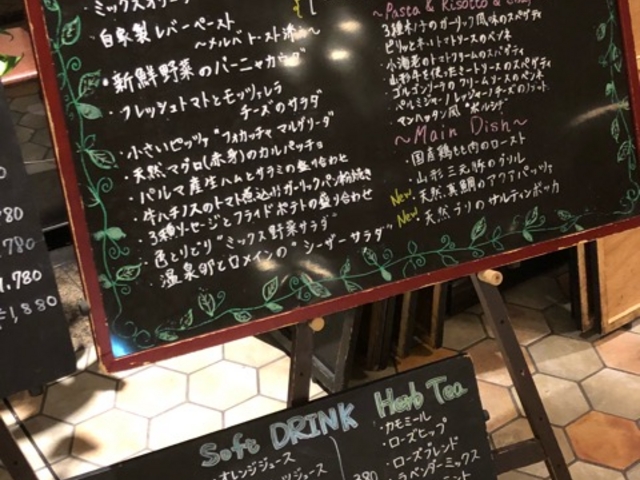 ミックスオリーブ
・自家製レバーペースト
～メルバトースト添え～
・新鮮野菜のバーニャカウダ
・フレッシュトマトとモッツァレラ
チーズのサラダ
・小さいピッツァ "フォカッチャ マルゲリータ"
・天然マグロ(赤身)のカルパッチョ
・パルマ産生ハムとサラミの盛り合わせ
・牛ハチノスのトマト煮込みガーリックパン粉焼き
・3種ソーセージとフライドポテトの盛り合わせ
・色とりどり "ミックス野菜サラダ"
・温泉卵とロメインの "シーザーサラダ"
～Pasta & Risotto &
3種キノコのガーリック風味のスパゲティ
ピリッと辛いトマトソースのペンネ
小海老のトマトクリームのスパゲティ
山形牛を使ったミートソースのスパゲティ
ゴルゴンゾーラのクリームソースのペンネ
パルミジャーノレッジャーノチーズのリゾット
マンハッタン風
～Main Dish～
・国産鶏もも肉のロースト
・山形三元豚のグリル
New・天然真鯛のアクアパッツァ
New・天然ブリのサルティンボッカ
780
1,780
1,880
Soft DRINK
・オレンジジュース
ジュース
380
Herb Tea
・カモミール
・ローズヒップ
・ローズブレンド
・ラベンダーミックス